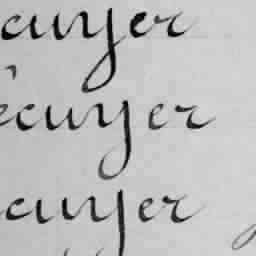 écuyer
écuyer
écuyer